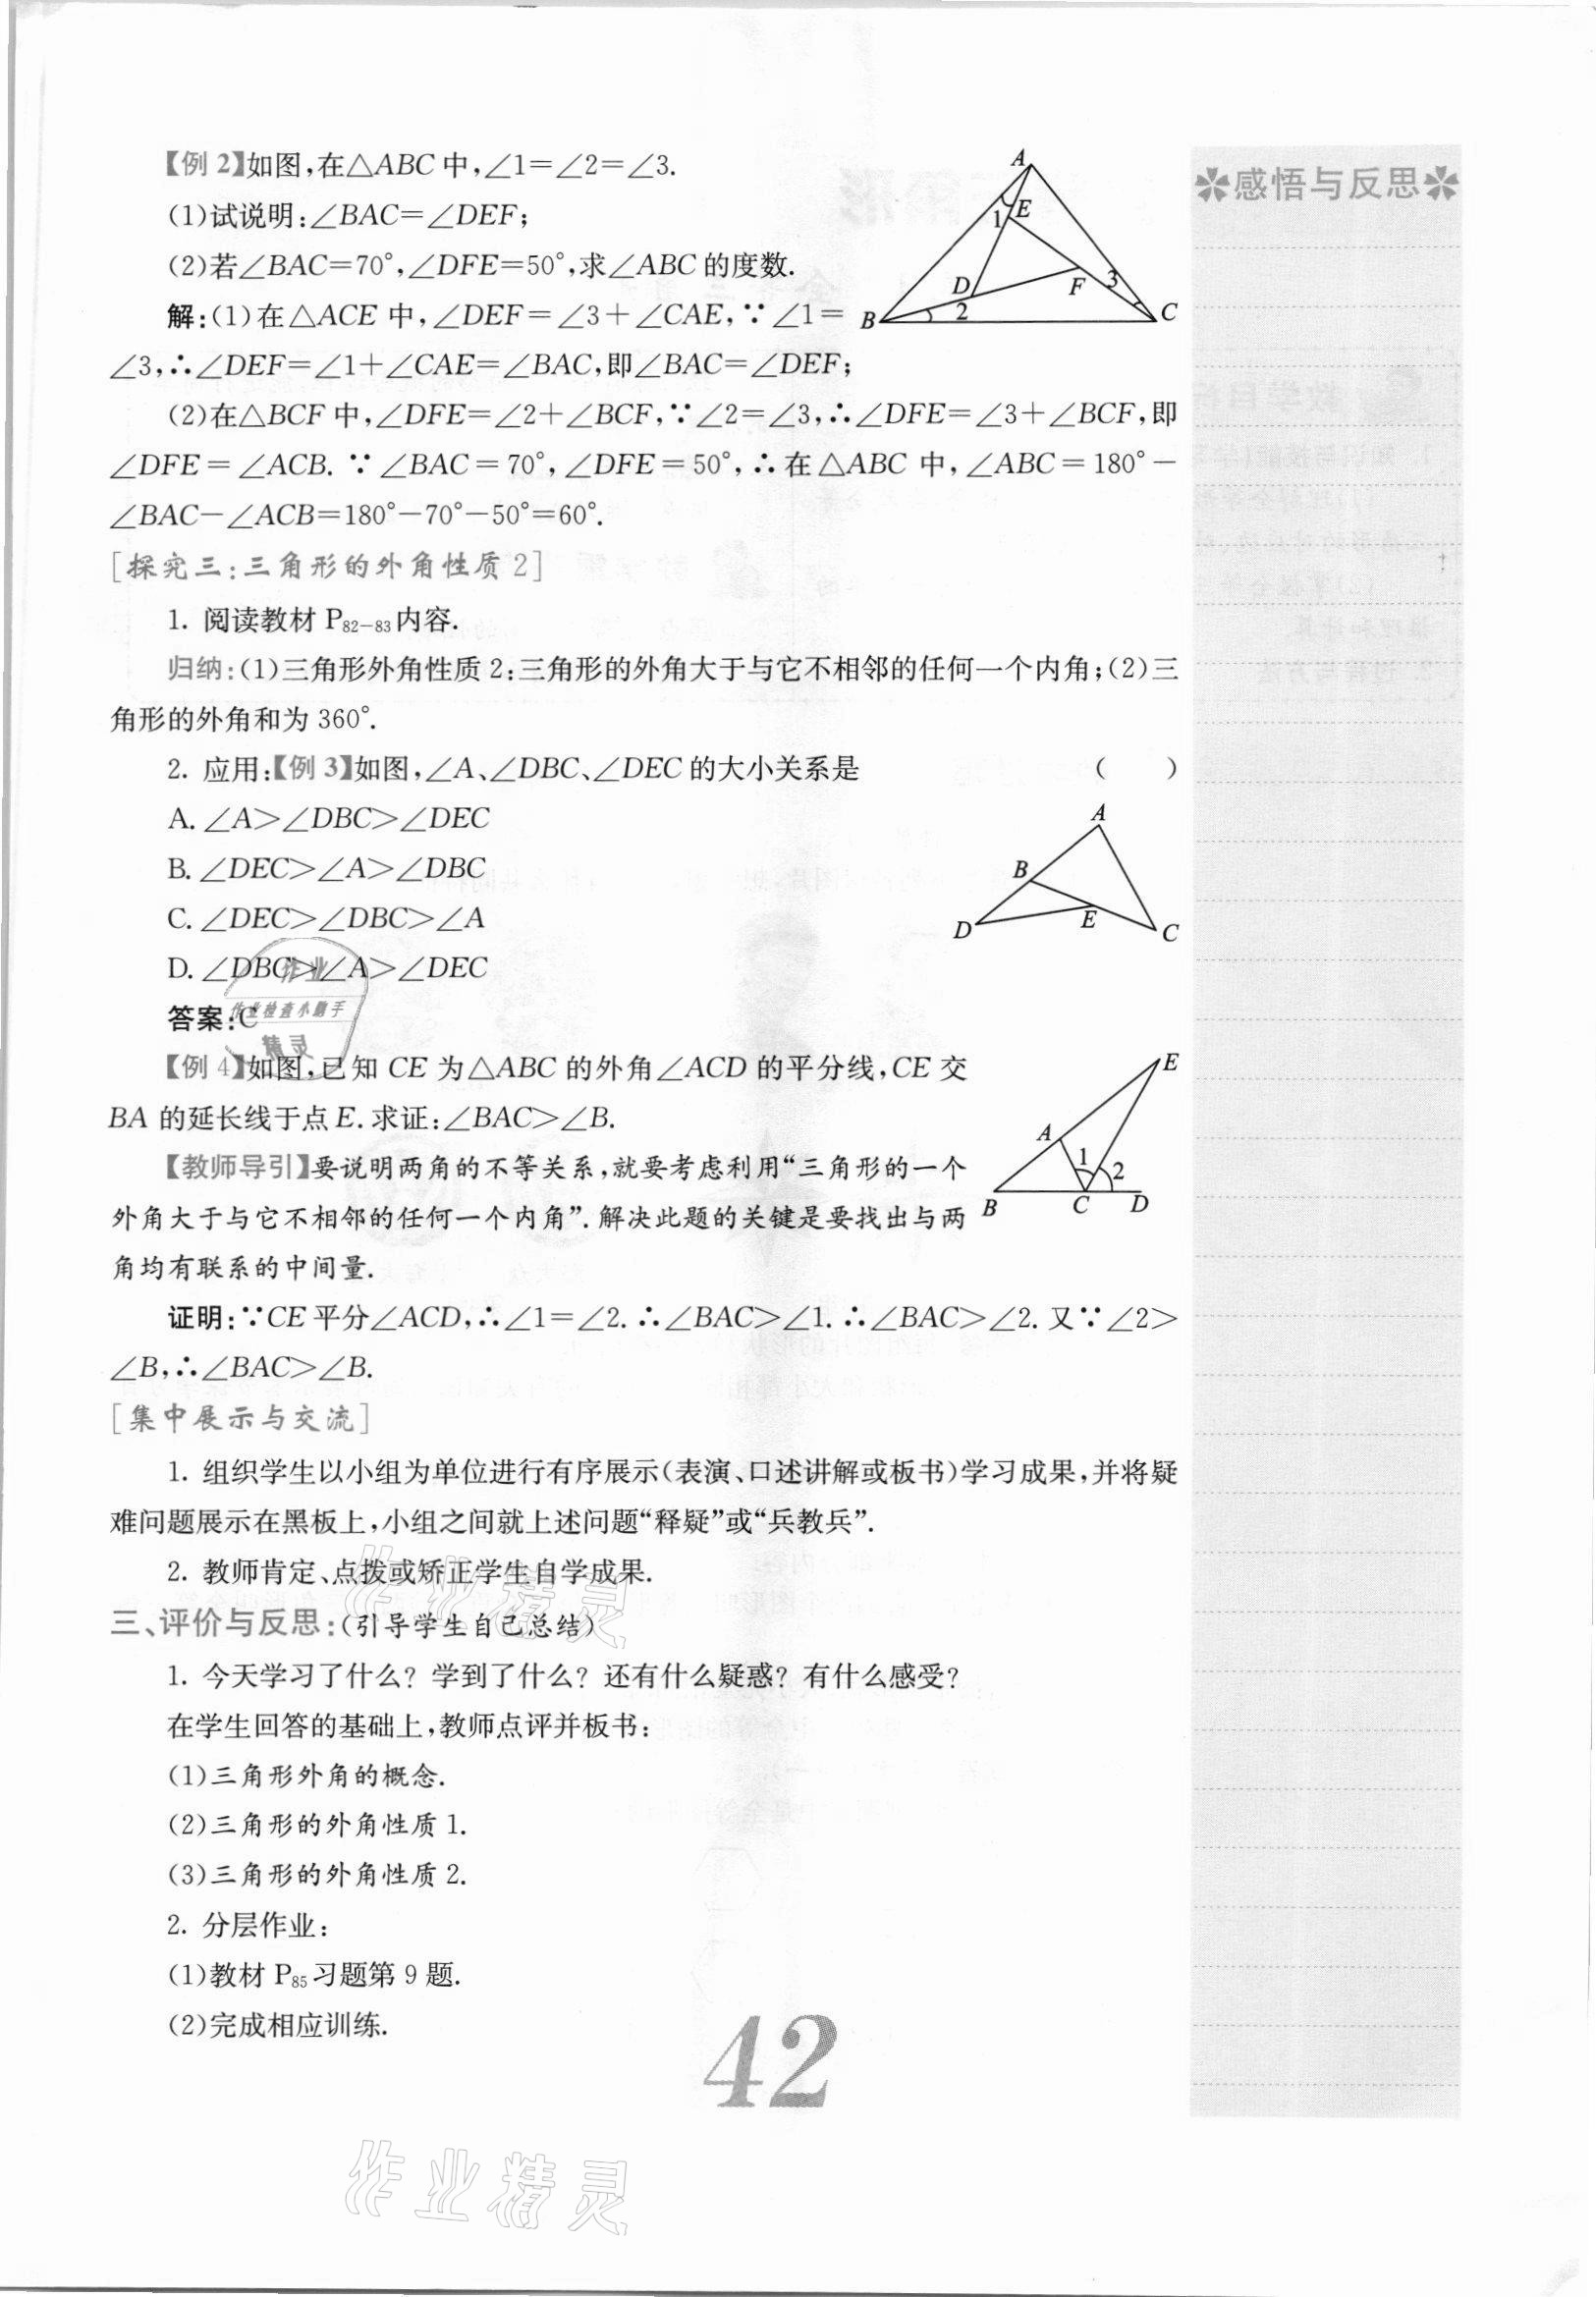 【例2】如图,在△ABC中,∠1=∠2=∠3.
(1)试说明:∠BAC=∠DEF;
(2)若∠BAC=70°,∠DFE=50°,求∠ABC的度数.
解:(1)在△ACE中,∠DEF=∠3+∠CAE,∵∠1=
∠3,∴∠DEF=∠1+∠CAE=∠BAC,即∠BAC=∠DEF;
(2)在△BCF中,∠DFE=∠2+∠BCF,∵∠2=∠3,∴∠DFE=∠3+∠BCF,即
∠DFE=∠ACB.∵∠BAC=70°,∠DFE=50°,∴在△ABC中,∠ABC=180°-
∠BAC-∠ACB=180°-70°-50°=60°.
A
1 E
D F 3
B 2 C
[探究三:三角形的外角性质2]
1. 阅读教材P82-83内容.
归纳:(1)三角形外角性质2:三角形的外角大于与它不相邻的任何一个内角;(2)三
角形的外角和为360°.
2. 应用:【例3】如图,∠A、∠DBC、∠DEC的大小关系是 ( )
A. ∠A>∠DBC>∠DEC
B. ∠DEC>∠A>∠DBC
C. ∠DEC>∠DBC>∠A
D. ∠DBC>∠A>∠DEC
A
B
D E C
答案:C
【例4】如图,已知CE为△ABC的外角∠ACD的平分线,CE交
BA的延长线于点E.求证:∠BAC>∠B.
【教师导引】要说明两角的不等关系,就要考虑利用“三角形的一个
外角大于与它不相邻的任何一个内角”.解决此题的关键是要找出与两
角均有联系的中间量.
E
A
1 2
B C D
证明:∵CE平分∠ACD,∴∠1=∠2.∴∠BAC>∠1.∴∠BAC>∠2.又∵∠2>
∠B,∴∠BAC>∠B.
[集中展示与交流]
1. 组织学生以小组为单位进行有序展示(表演、口述讲解或板书)学习成果,并将疑
难问题展示在黑板上,小组之间就上述问题“释疑”或“兵教兵”.
2. 教师肯定、点拨或矫正学生自学成果.
三、评价与反思:(引导学生自己总结)
1. 今天学习了什么?学到了什么?还有什么疑惑?有什么感受?
在学生回答的基础上,教师点评并板书:
(1)三角形外角的概念.
(2)三角形的外角性质1.
(3)三角形的外角性质2.
2. 分层作业:
(1)教材P85习题第9题.
(2)完成相应训练.
42
感悟与反思
作业
作业检查小助手
精灵
作业精灵
作业精灵